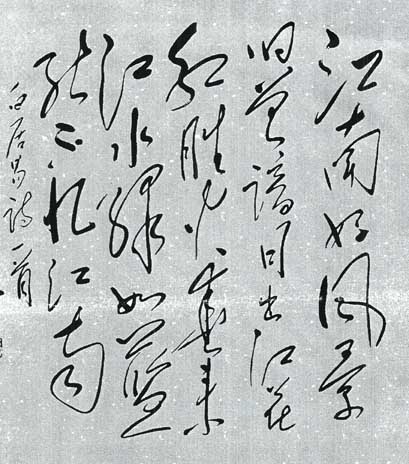 江南好风景
旧曾谙日出江花
红胜火春来
江水绿如蓝
能不忆江南
白居易诗一首